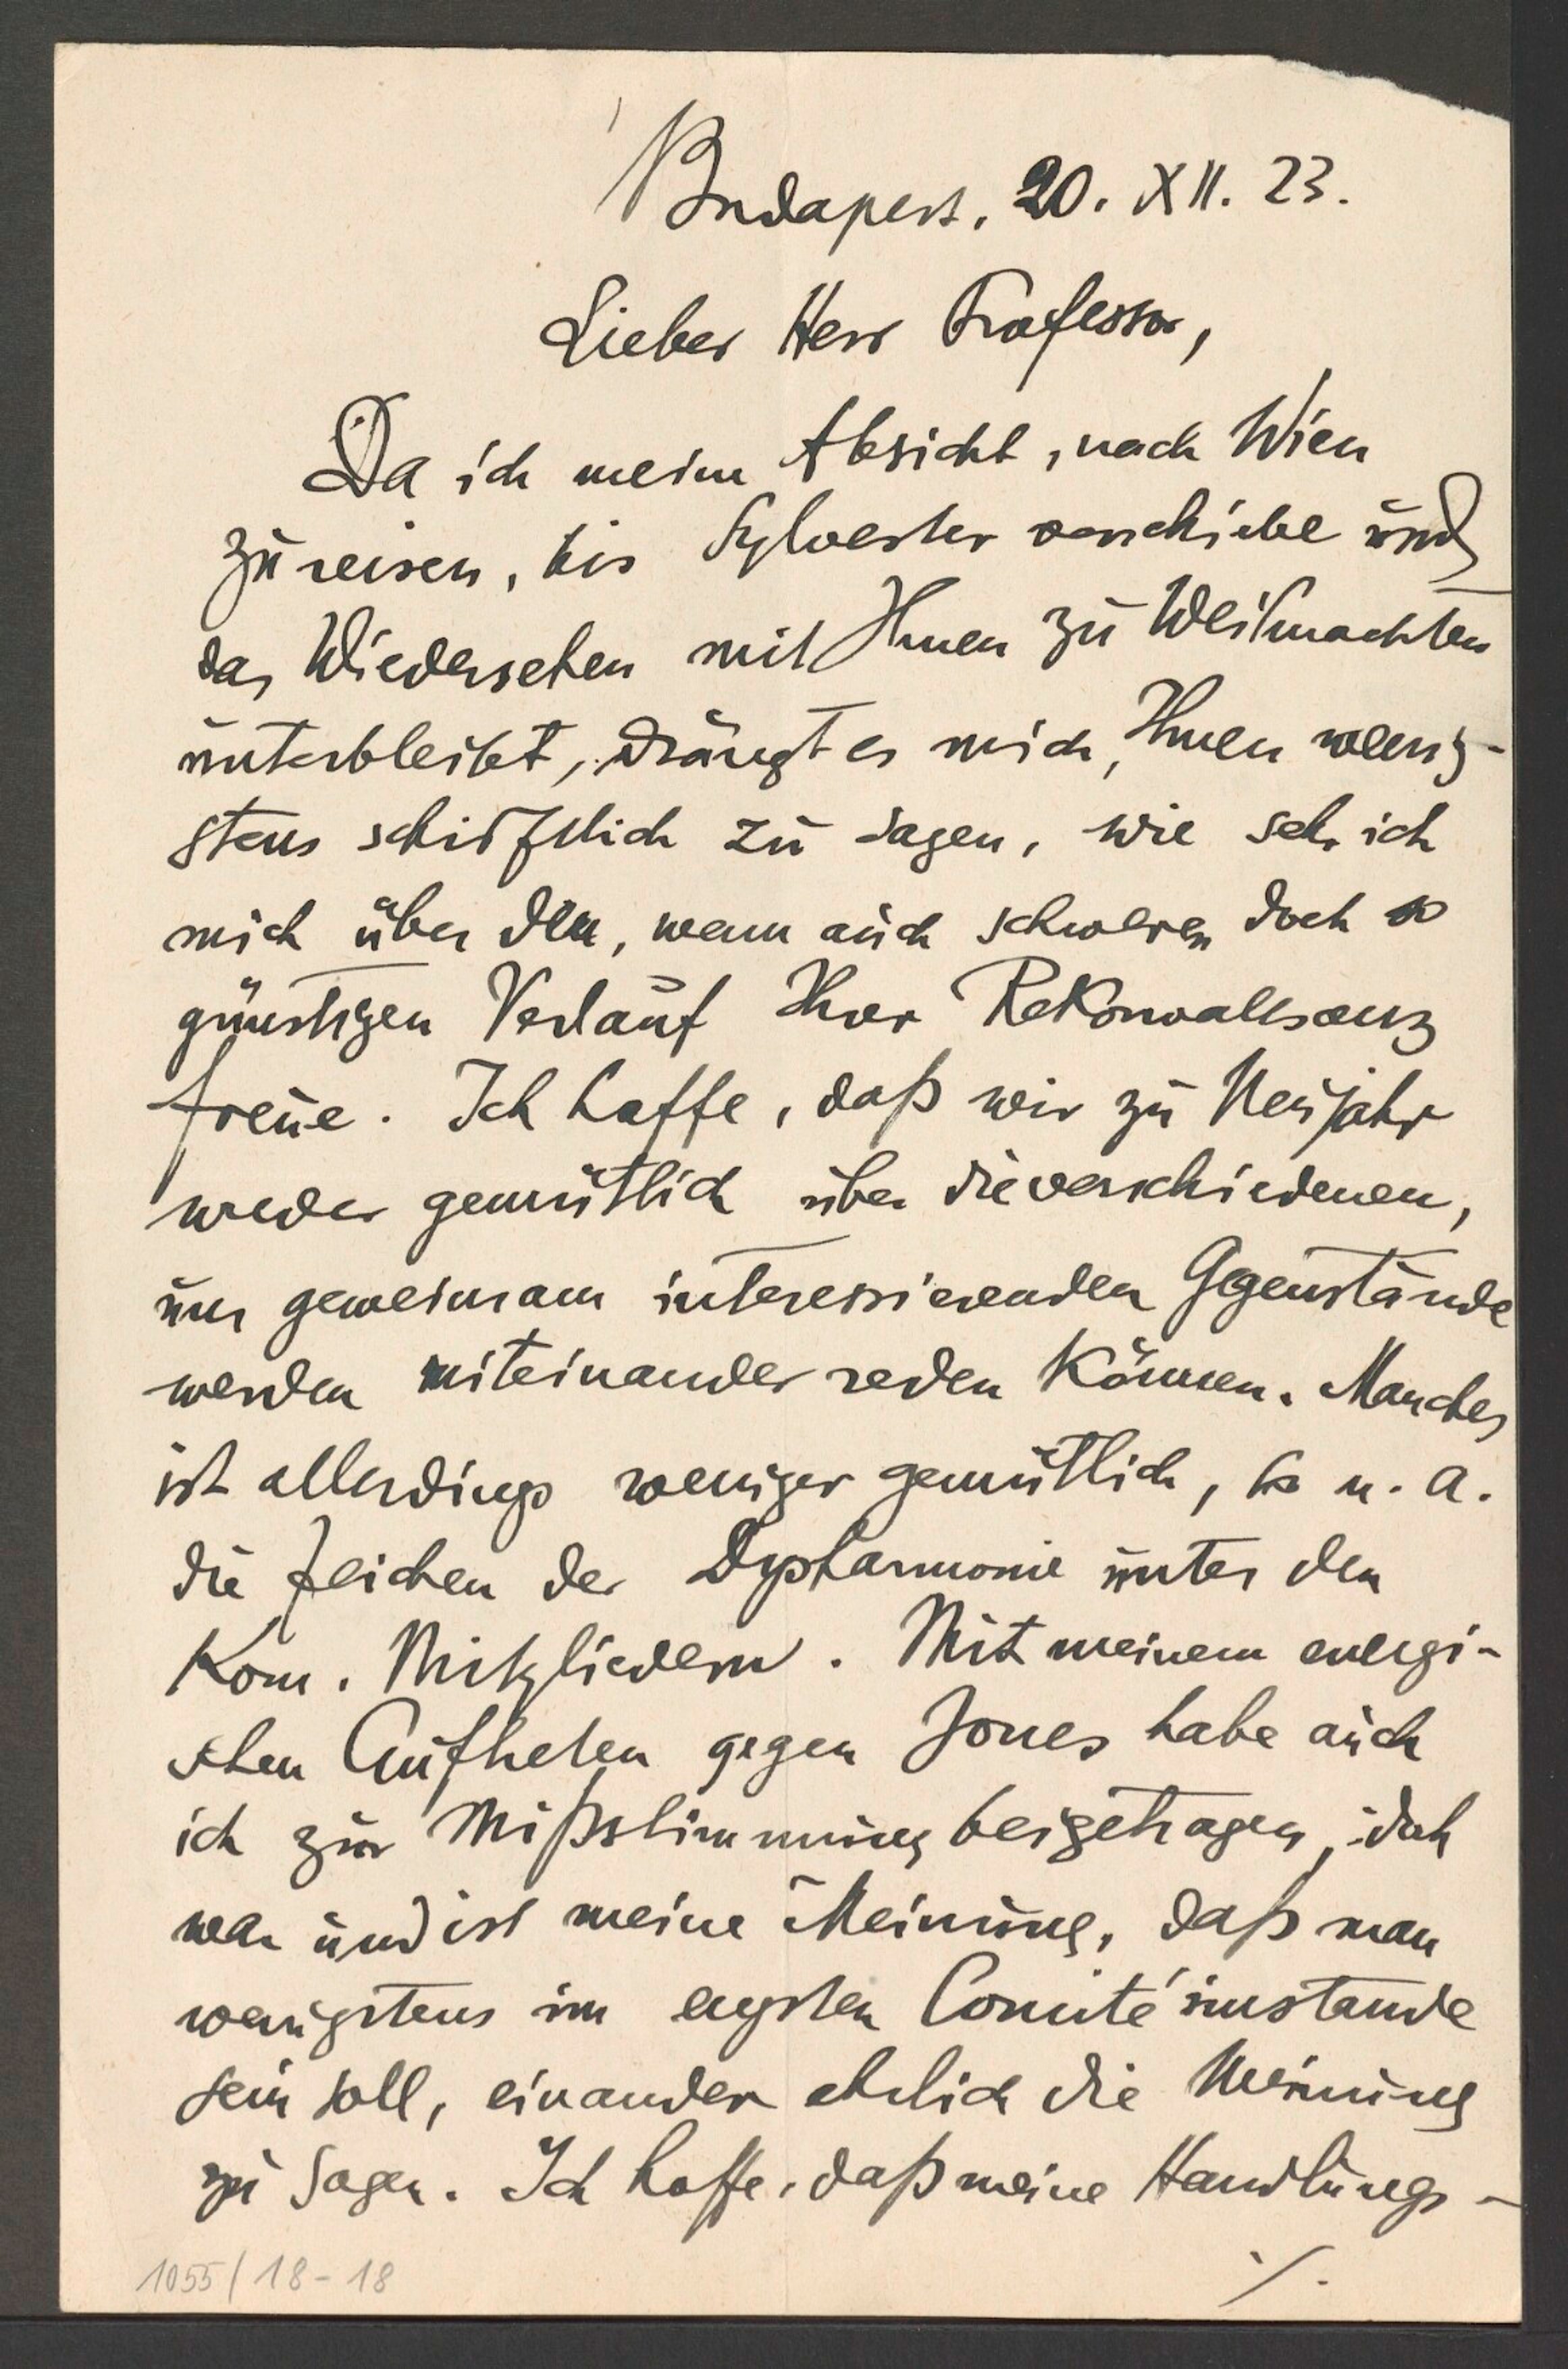 Budapest, 20. XII. 23.
Lieber Herr Professor,
Da ich meine Absicht, nach Wien
zu reisen, bis Sylvester verschiebe und
das Wiedersehen mit Ihnen zu Weihnachten
unterbleibt, drängt es mich, Ihnen wenig-
stens schriftlich zu sagen, wie sehr ich
mich über den, wenn auch schweren doch so
günstigen Verlauf Ihrer Rekonvaleszenz
freue. Ich hoffe, daß wir zu Neujahr
wieder gemütlich über die verschiedenen,
uns gemeinsam interessierenden Gegenstände
werden miteinander reden können. Manches
ist allerdings weniger gemütlich, so u. a.
die Zeichen der Dysharmonie unter den
Kom. Mitgliedern. Mit meinem energi-
schen Auftreten gegen Jones habe auch
ich zur Mißstimmung beigetragen, doch
war und ist meine Meinung, daß man
wenigstens im engsten Comité imstande
sein soll, einander ehrlich die Meinung
zu sagen. Ich hoffe, daß meine Handlungs-
./.
1055/18-18